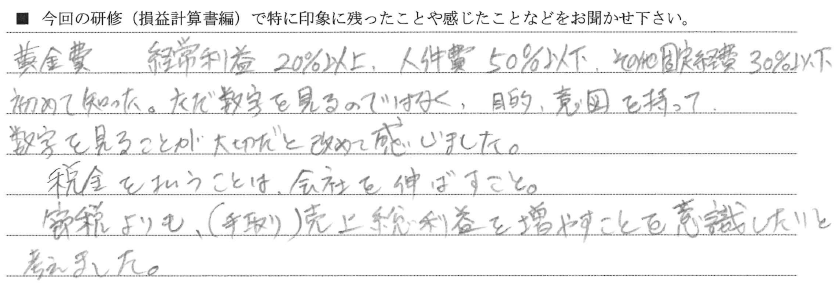 ■ 今回の研修（損益計算書編）で特に印象に残ったことや感じたことなどをお聞かせ下さい。
黄金費　経常利益 20%以上、人件費 50%以下、その他固定経費 30%以下
初めて知った。ただ数字を見るのではなく、目的、意図を持って、
数字を見ることが大切だと改めて感じました。
税金を払うことは、会社を伸ばすこと。
節税よりも、(手取り)売上総利益を増やすことを意識したいと
考えました。